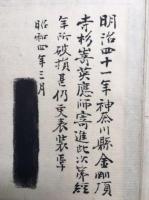 明治四十一年神奈川縣金剛頂
寺杉崎英應師寄進此次第経
年所破損甚仍文表装畢
昭和四年三月